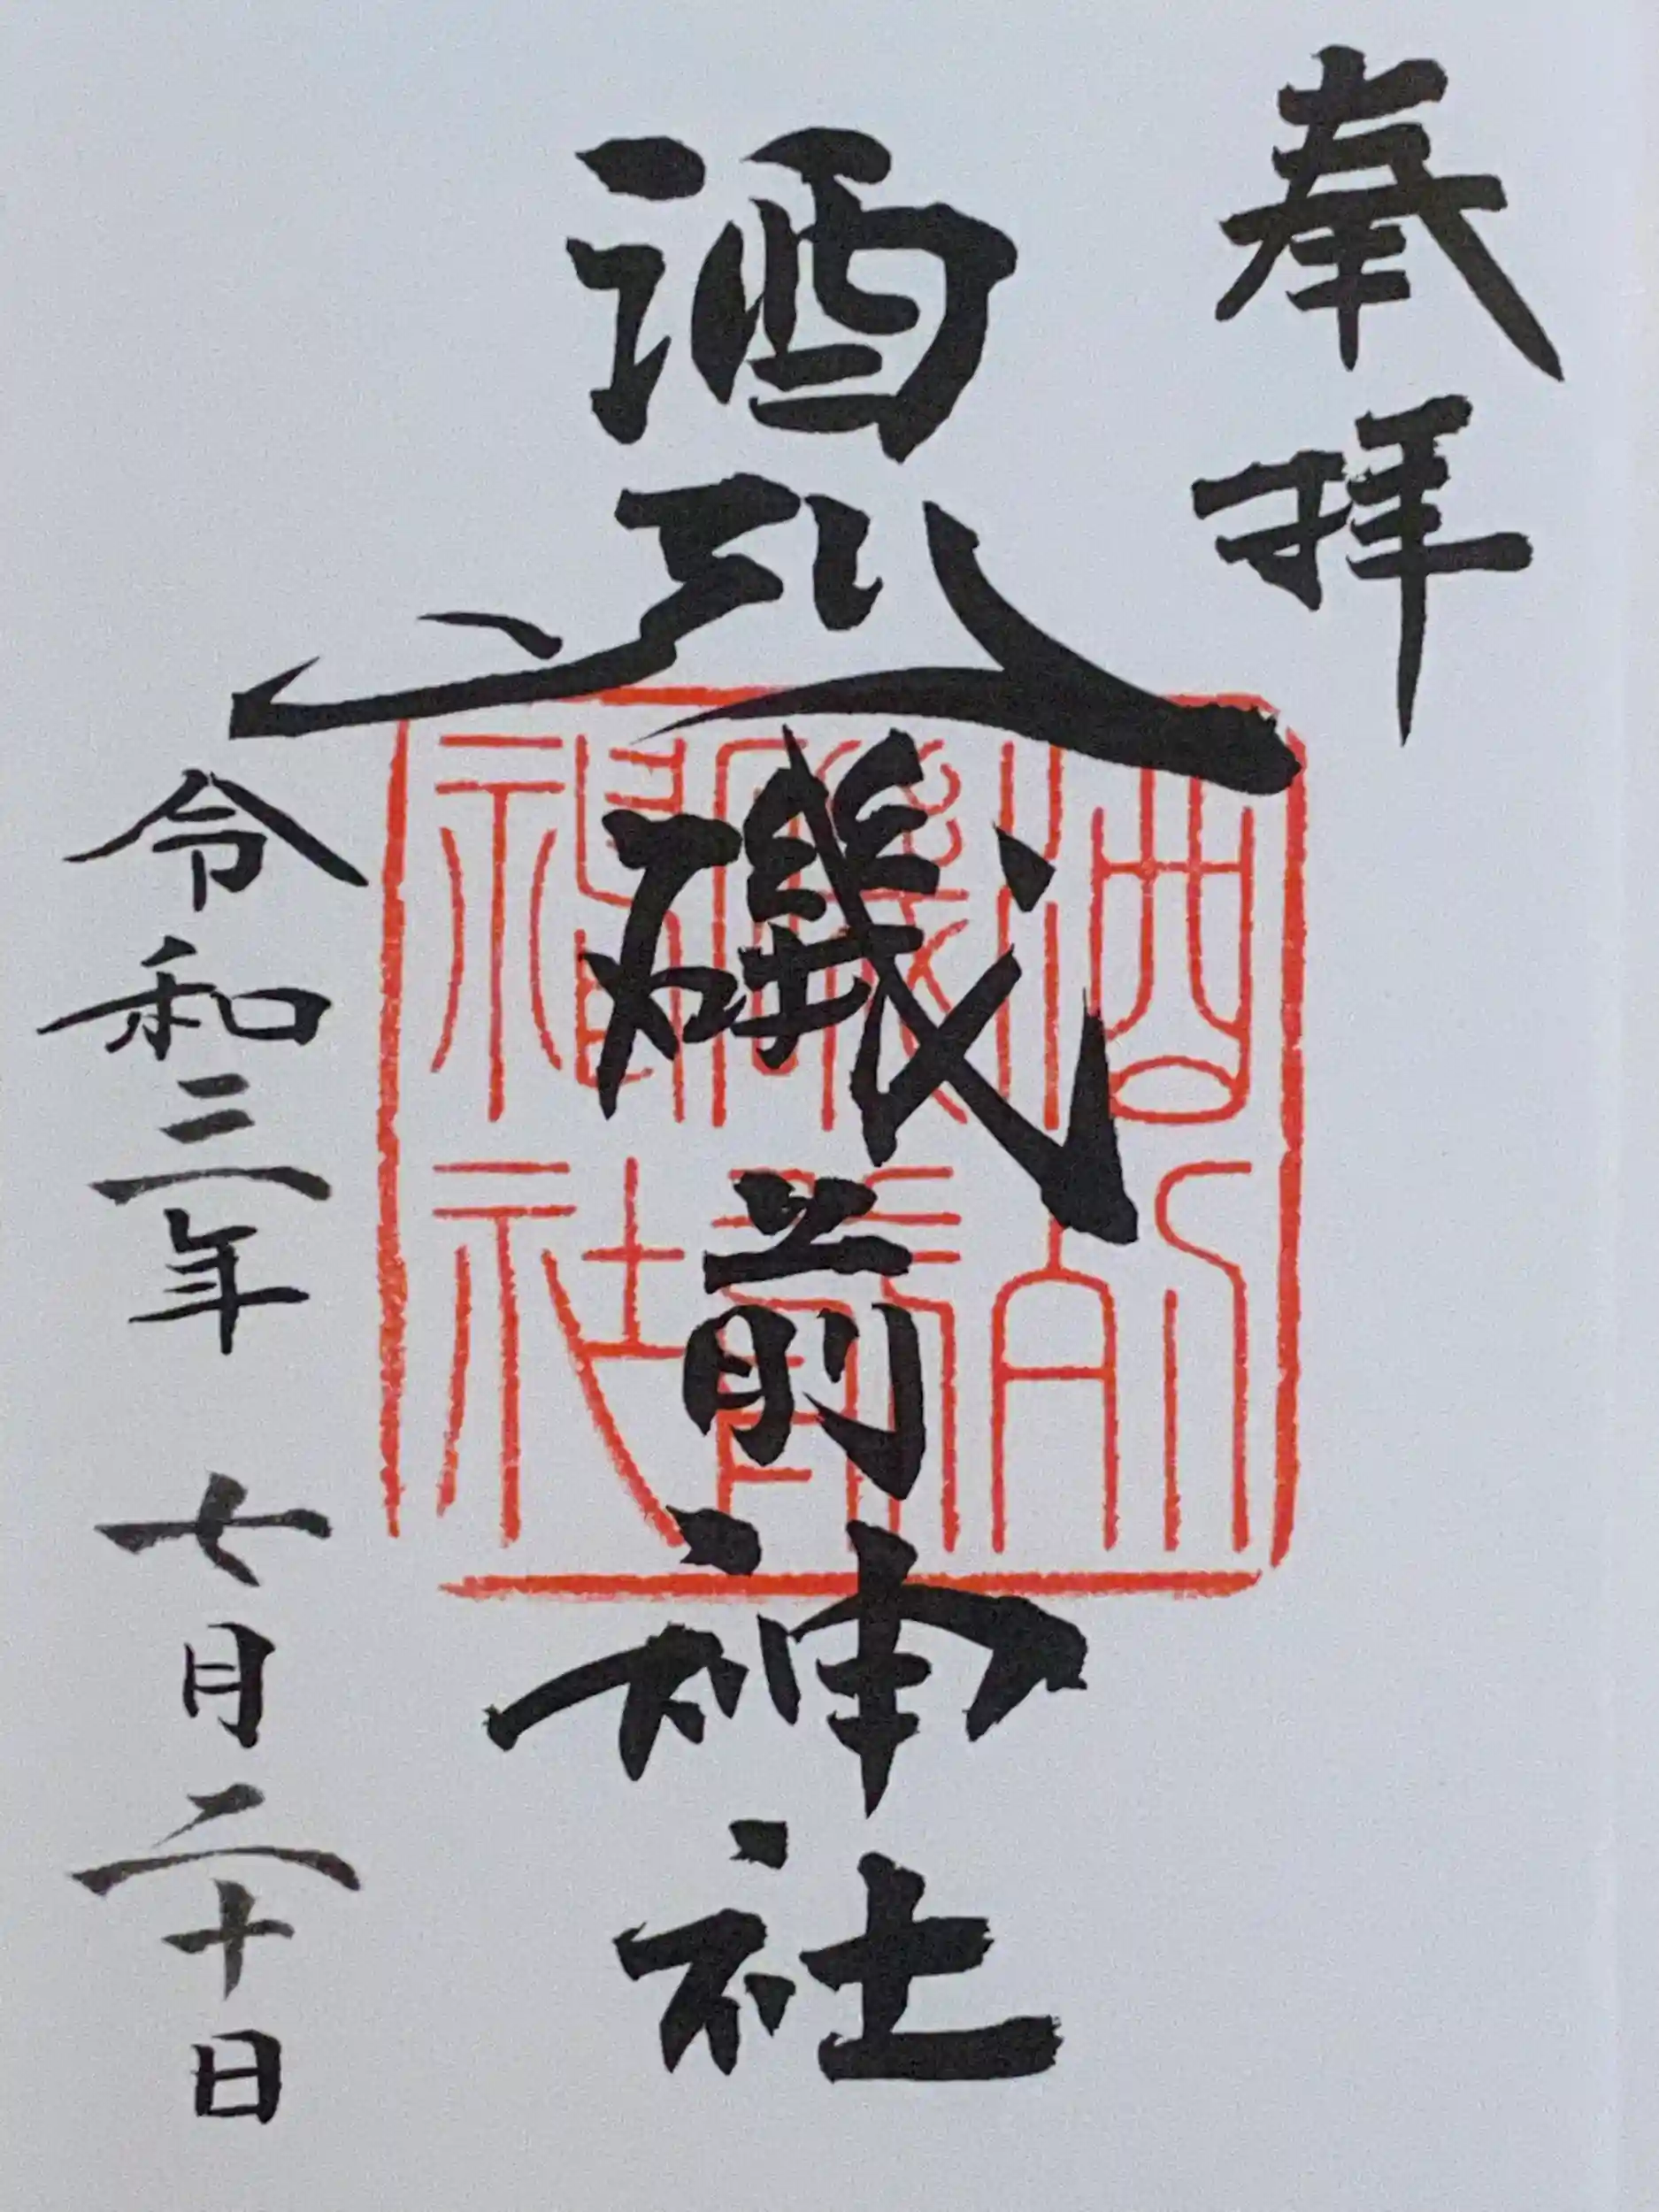 奉拝
酒列磯前神社
令和三年 七月二十日
酒列
磯前
神社